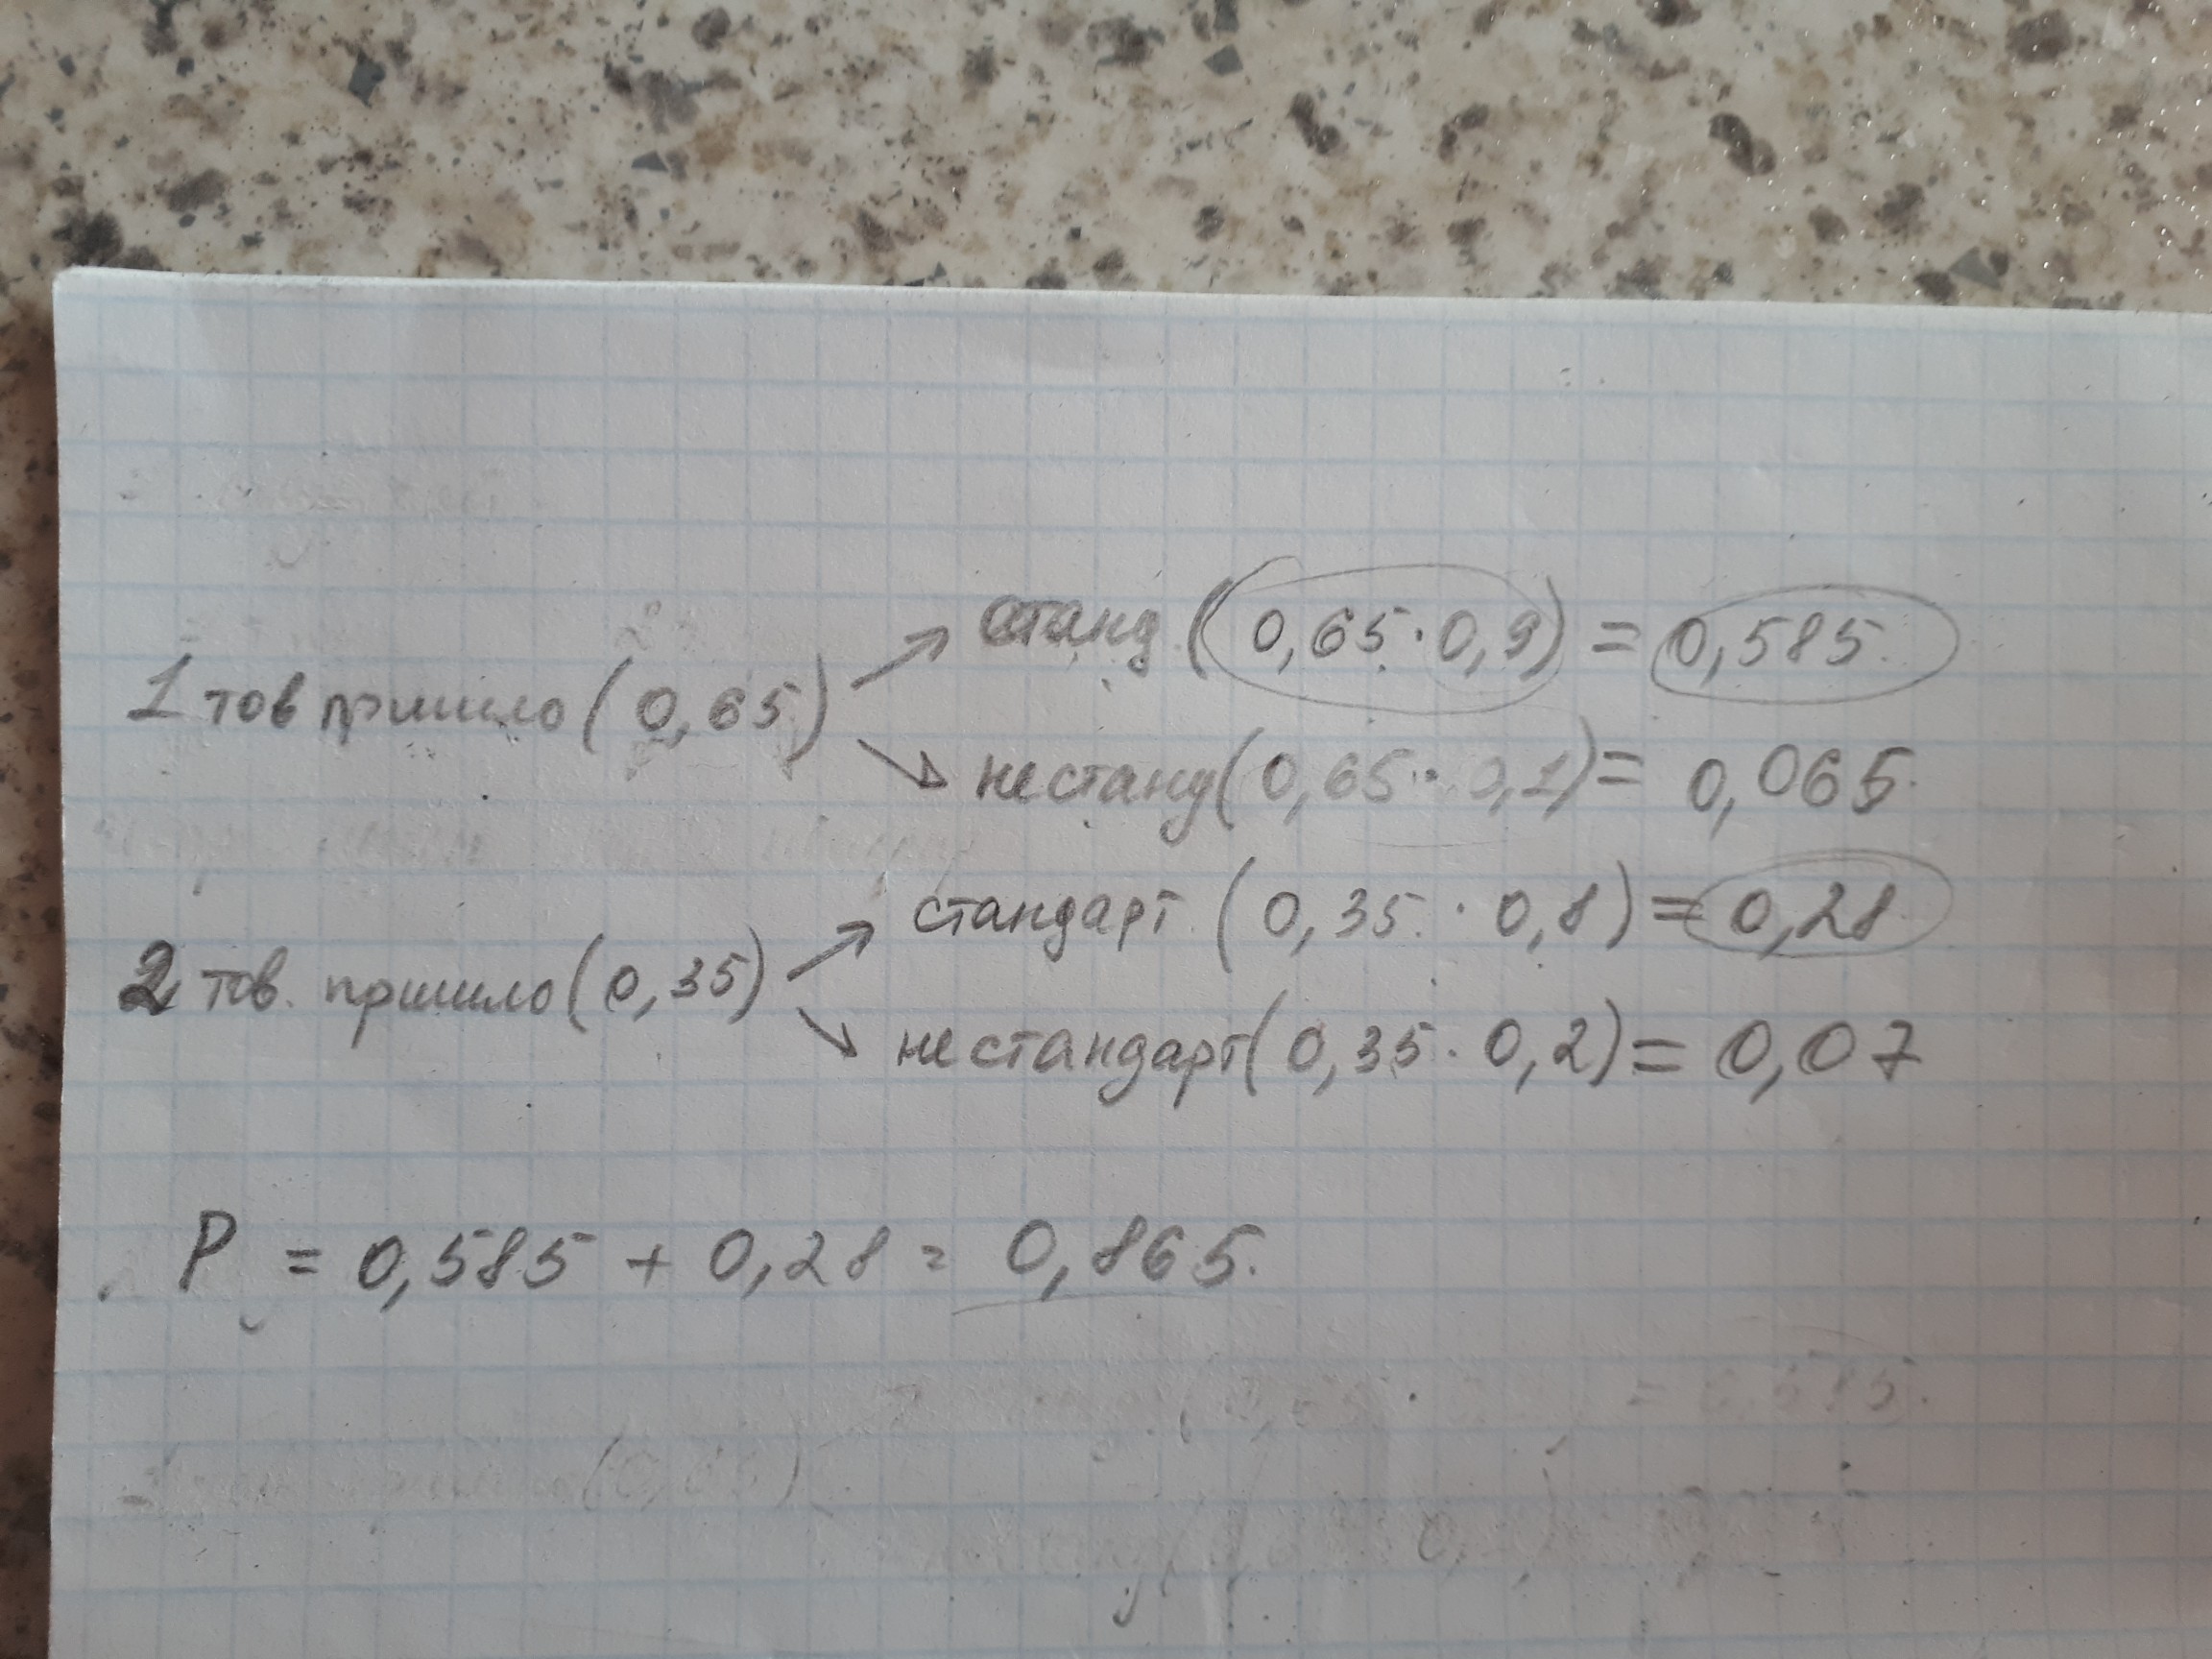 станд (0,65·0,9) = 0,585.
1 тов пришло (0,65)
нестанд (0,65·0,1) = 0,065.
стандарт. (0,35·0,8) = 0,28
2 тов. пришло (0,35)
нестандарт (0,35·0,2) = 0,07
P = 0,585 + 0,28 = 0,865.